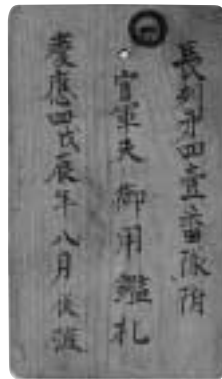 長州才四壹番隊附
官軍夫御用鑑札
慶應四戊辰年八月後渡